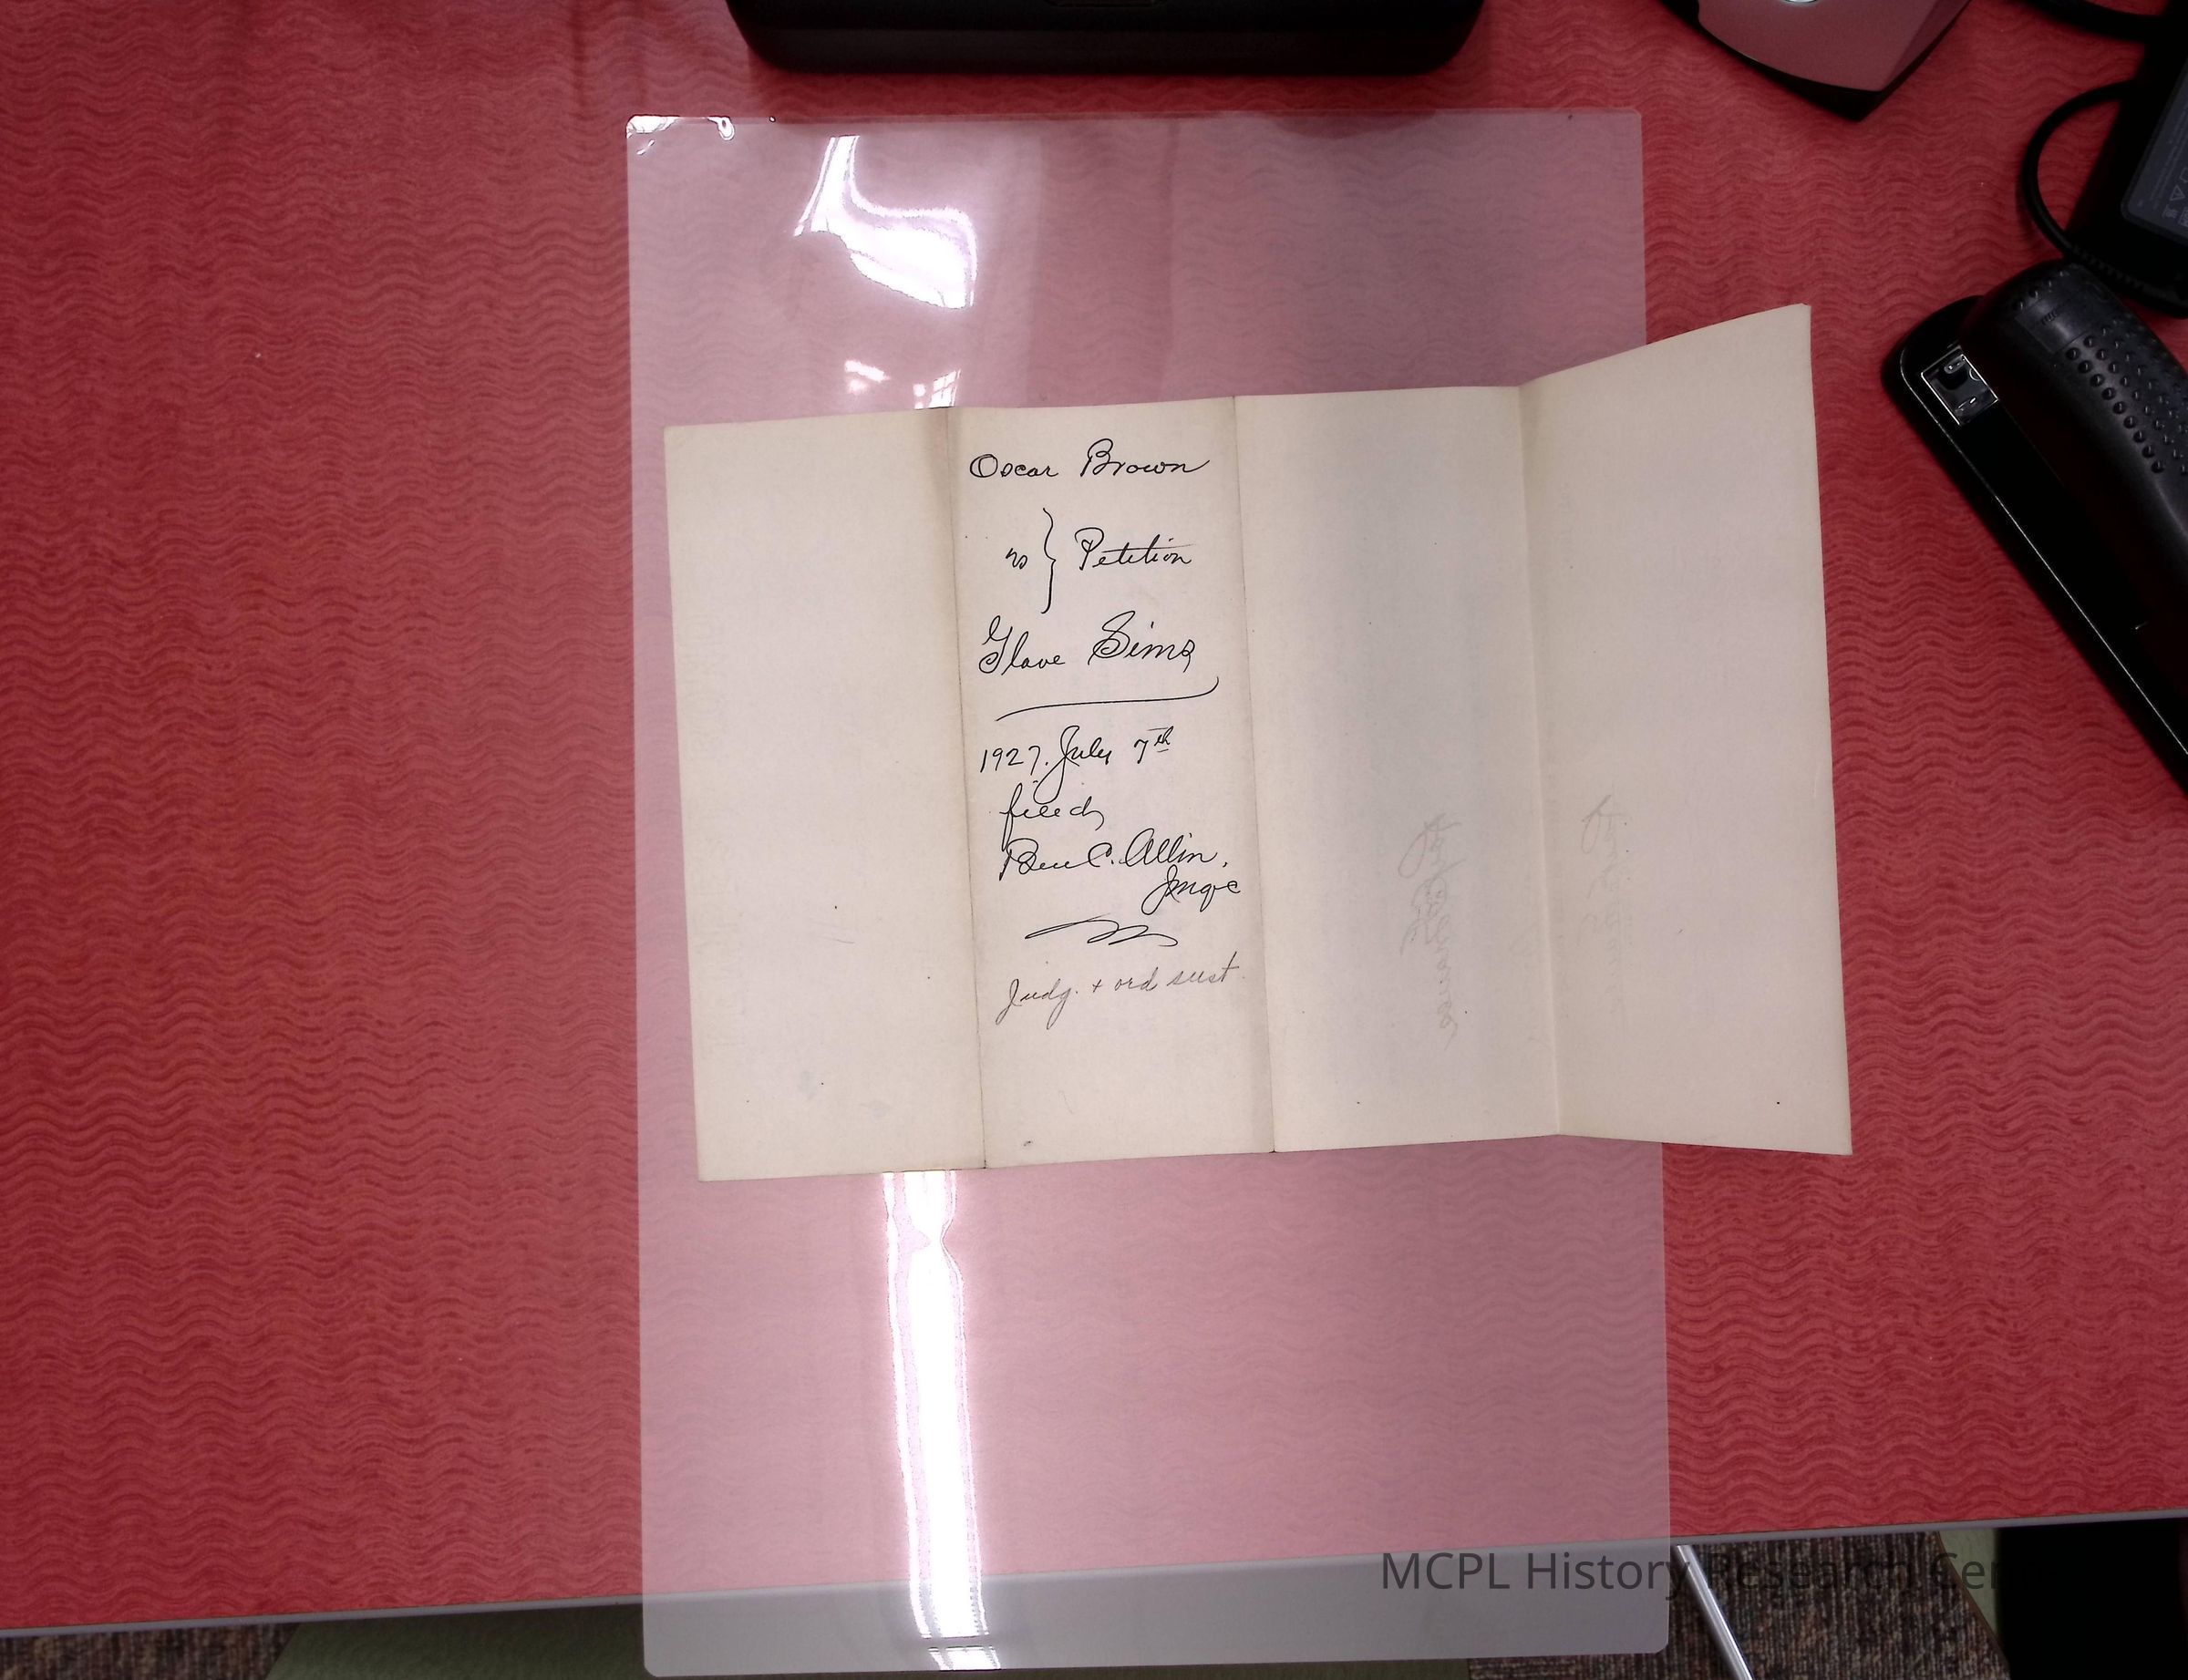 Oscar Brown
vs } Petition
Glave Sims
1927. July 7th
filed
Ben C. Allin,
Judge
Judg. + ord sust.
MCPL History Research Cen